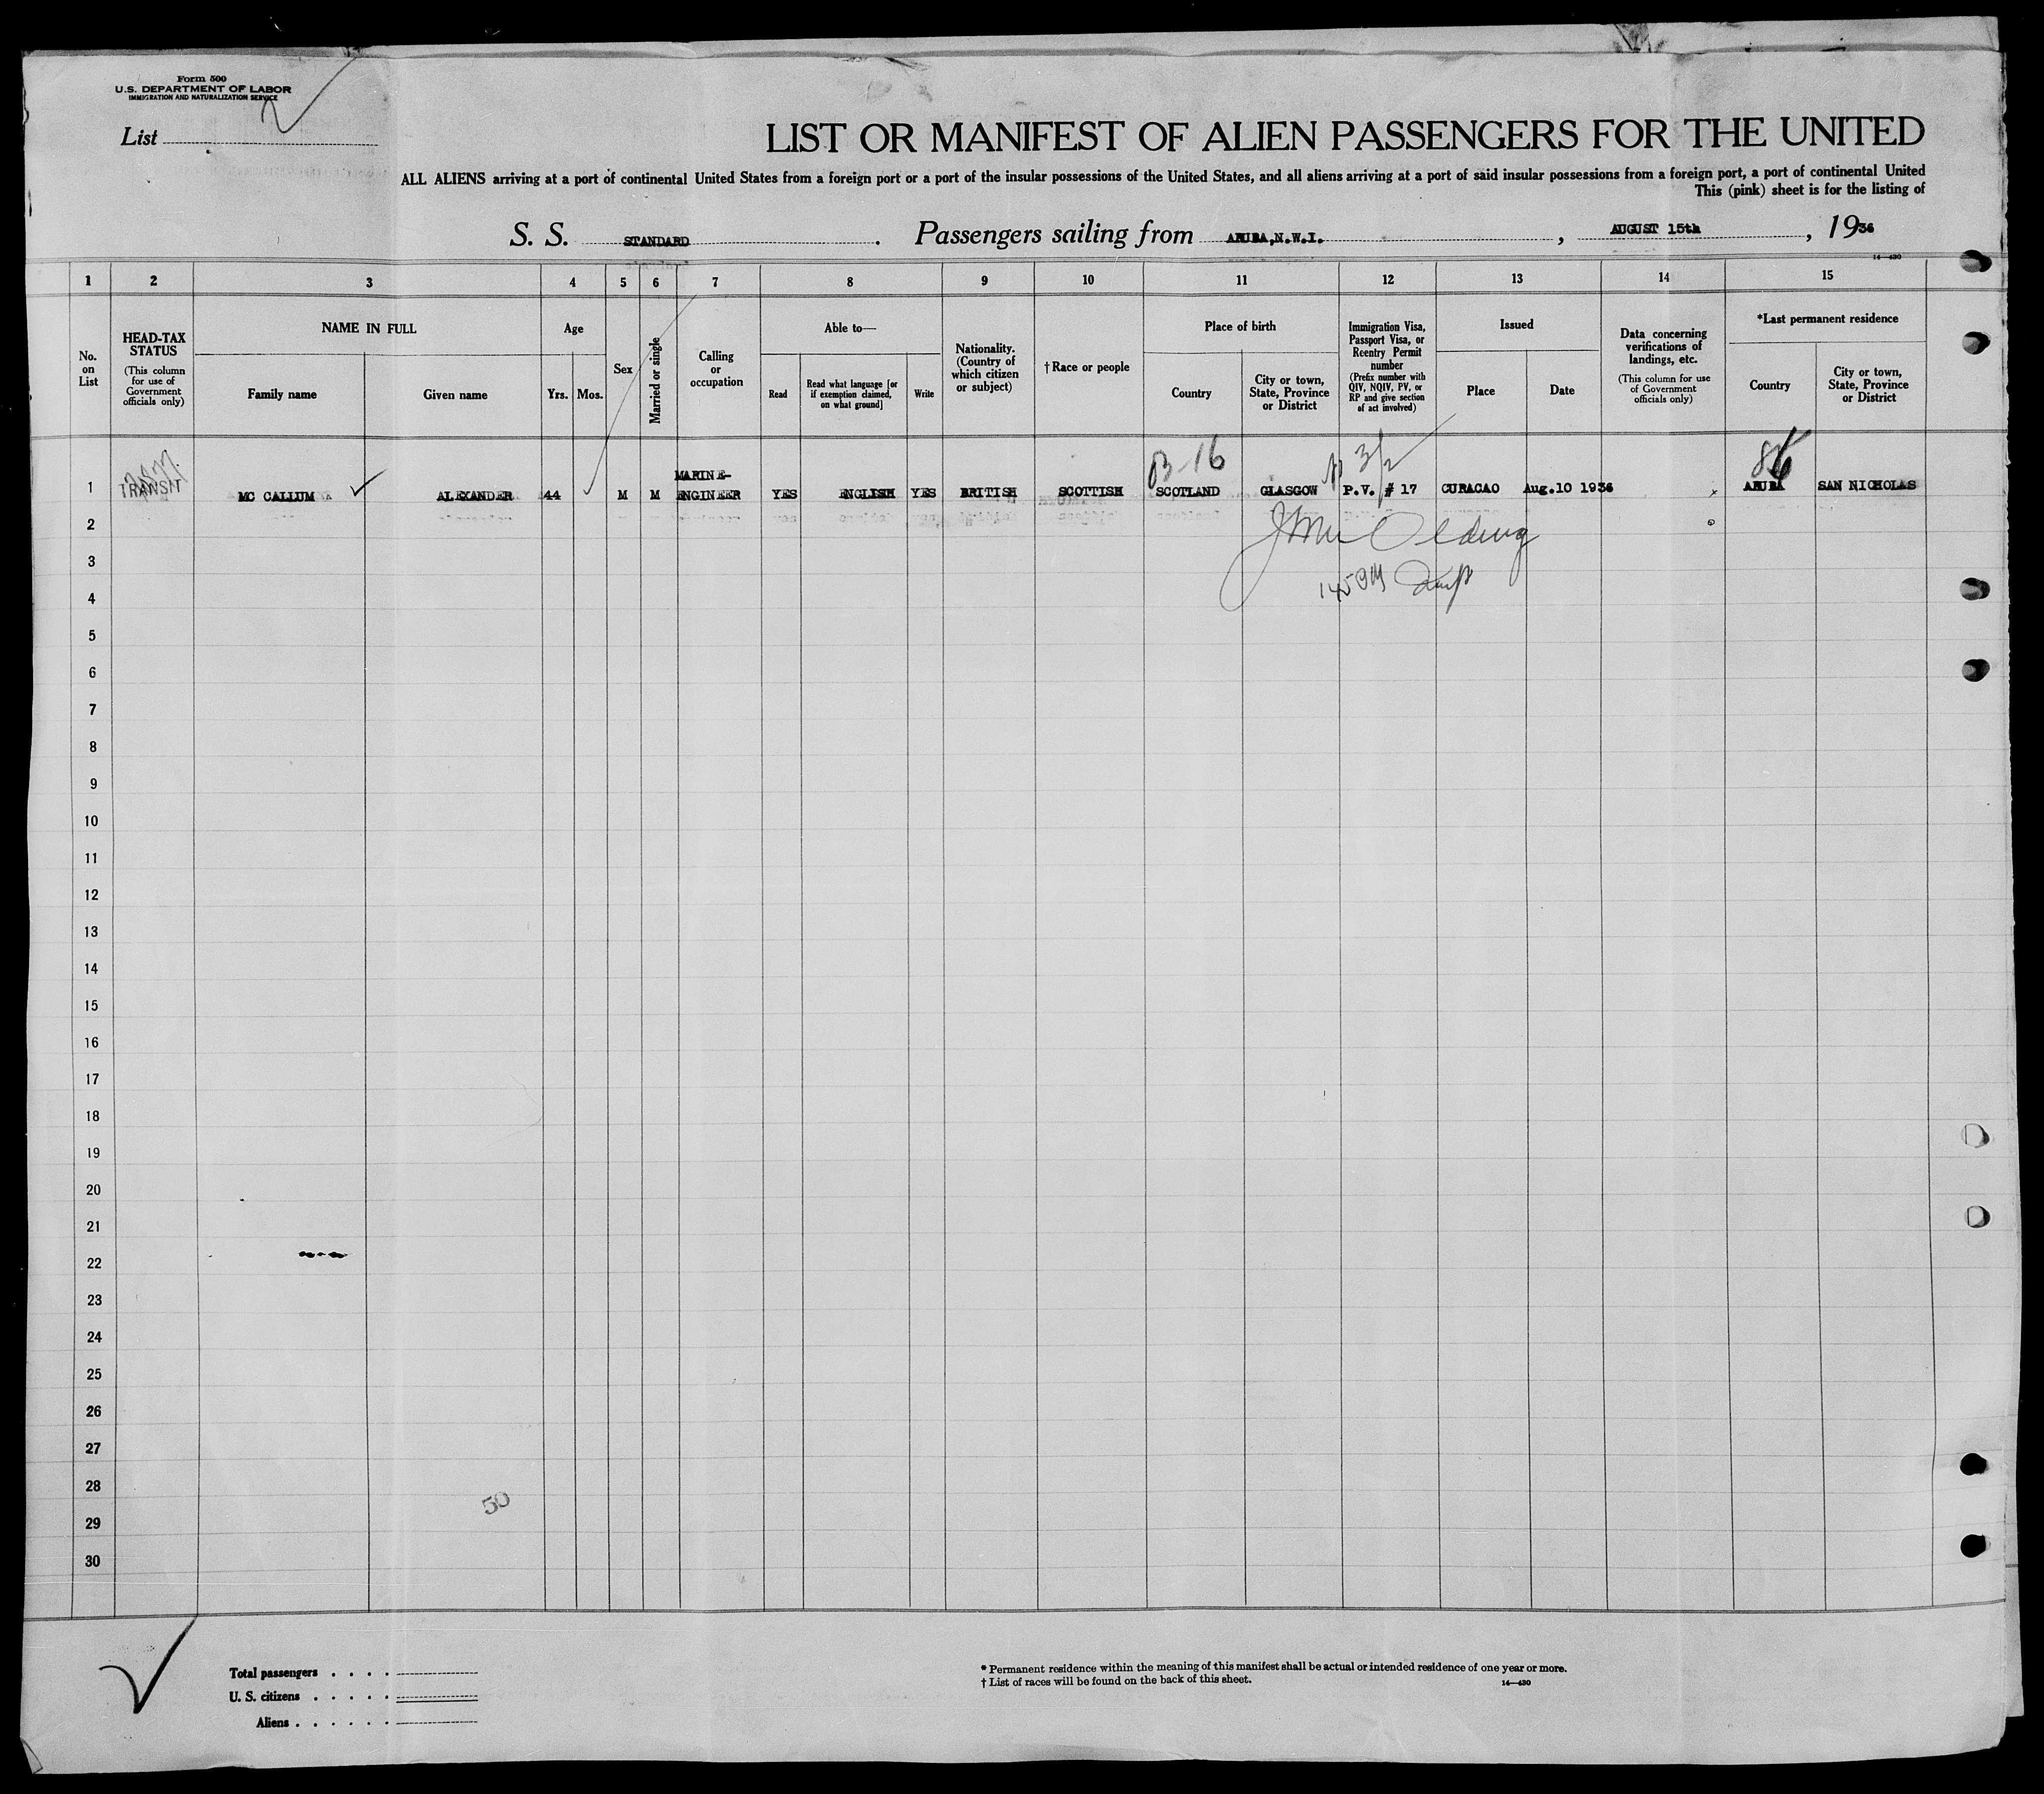 Form 500
U.S. DEPARTMENT OF LABOR
IMMIGRATION AND NATURALIZATION SERVICE
List 2
LIST OR MANIFEST OF ALIEN PASSENGERS FOR THE UNITED
ALL ALIENS arriving at a port of continental United States from a foreign port or a port of the insular possessions of the United States, and all aliens arriving at a port of said insular possessions from a foreign port, a port of continental United
This (pink) sheet is for the listing of
S. S. STANDARD . Passengers sailing from ARUBA,N.W.I. , AUGUST 15th , 1936
14—430
1 2 3 4 5 6 7 8 9 10 11 12 13 14 15
No. on List
HEAD-TAX STATUS
(This column for use of Government officials only)
NAME IN FULL
Family name
Given name
Age
Yrs.
Mos.
Sex
Married or single
Calling or occupation
Able to—
Read
Read what language [or if exemption claimed, on what ground]
Write
Nationality. (Country of which citizen or subject)
† Race or people
Place of birth
Country
City or town, State, Province or District
Immigration Visa, Passport Visa, or Reentry Permit number
(Prefix number with QIV, NQIV, PV, or RP and give section of act involved)
Issued
Place
Date
Data concerning verifications of landings, etc.
(This column for use of Government officials only)
*Last permanent residence
Country
City or town, State, Province or District
3/2
1 TRANSIT MC CALLUM ALEXANDER 44 M M MARINE-ENGINEER YES ENGLISH YES BRITISH SCOTTISH SCOTLAND GLASGOW P.V. # 17 CURACAO Aug.10 1936 ARUBA SAN NICHOLAS
2
3
4
5
6
7
8
9
10
11
12
13
14
15
16
17
18
19
20
21
22
23
24
25
26
27
28
50
29
30
Total passengers . . . .
U. S. citizens . . . . .
Aliens . . . . . .
* Permanent residence within the meaning of this manifest shall be actual or intended residence of one year or more.
† List of races will be found on the back of this sheet.
14—430